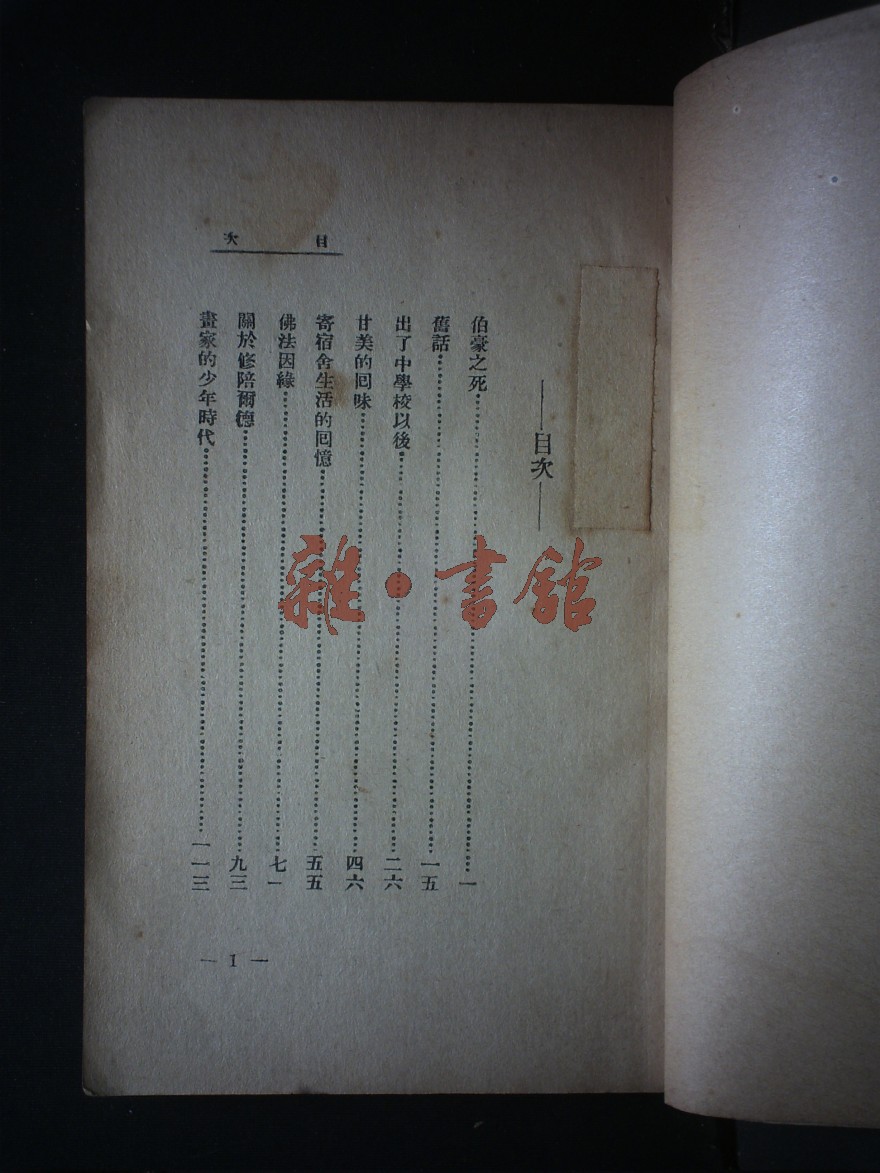 目次
——目次——
伯豪之死……一
舊話……一五
出了中學校以後……二六
甘美的回味……四六
寄宿舍生活的回憶……五五
佛法因緣……七一
關於修陪爾德……九三
畫家的少年時代……一一三
— 1 —
雜·書館